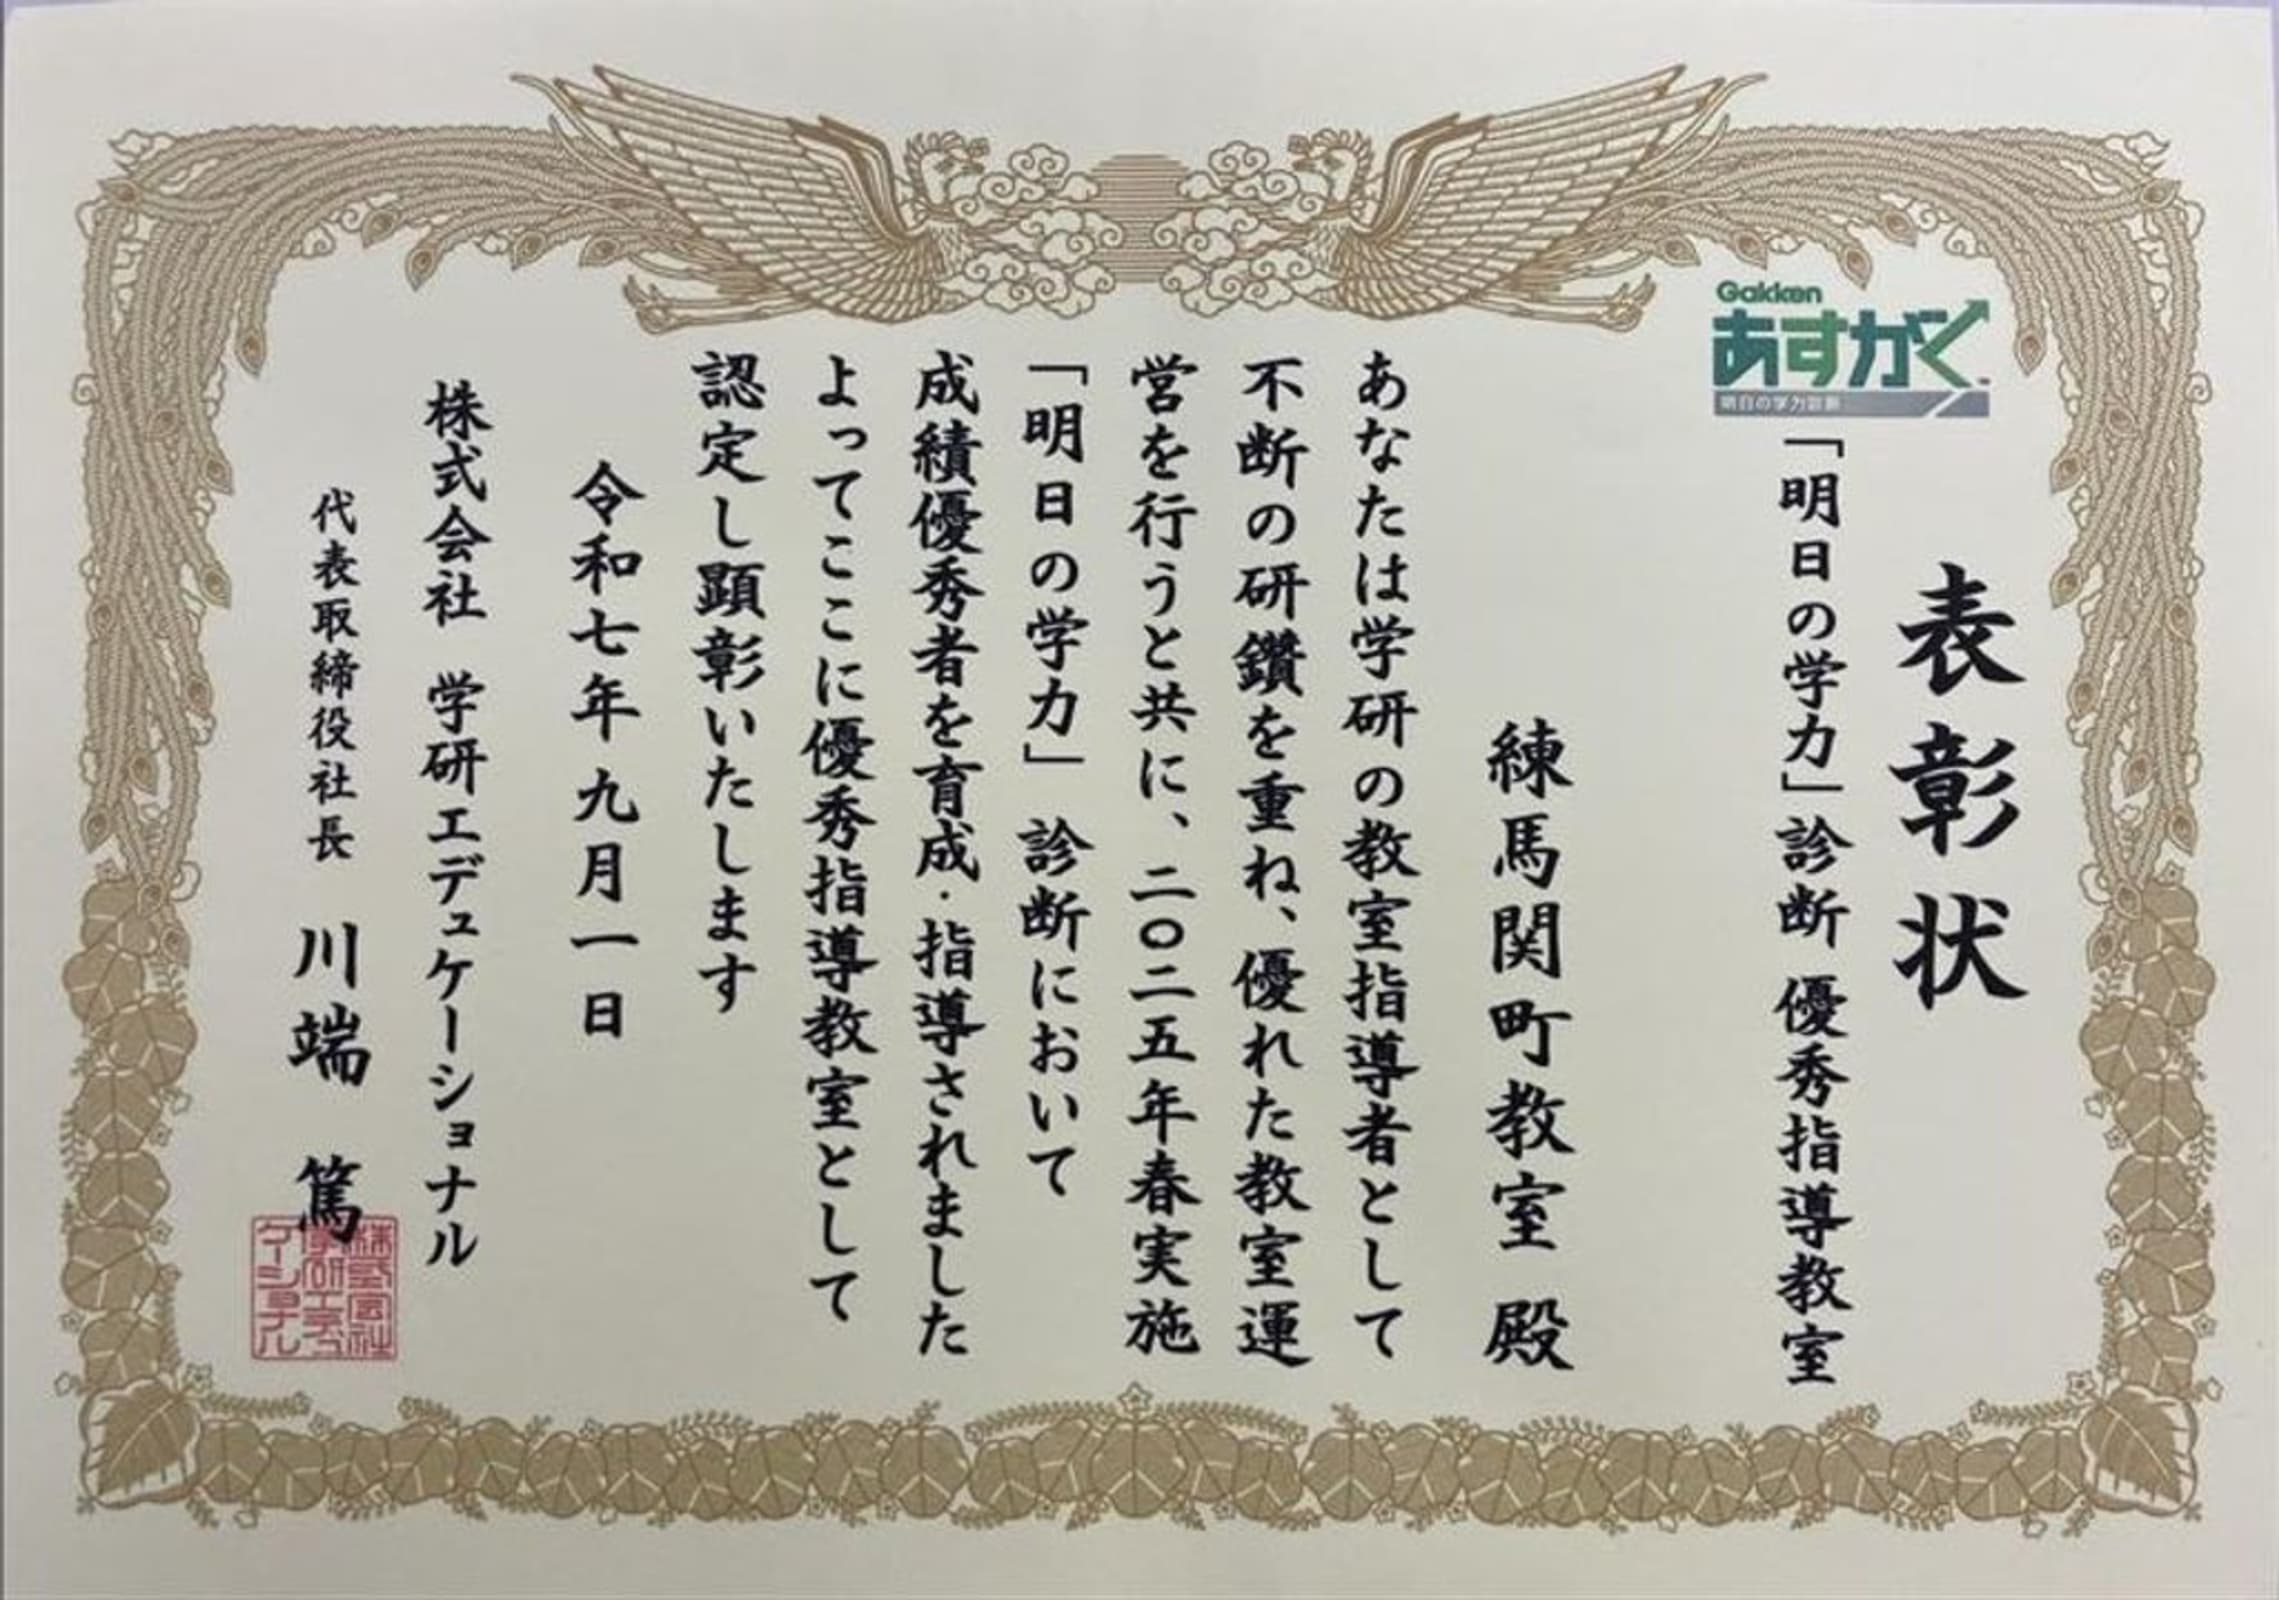 表彰状
Gakken
あすがく
明日の学力診断
「明日の学力」診断 優秀指導教室
練馬関町教室 殿
あなたは学研の教室指導者として
不断の研鑽を重ね、優れた教室運
営を行うと共に、二〇二五年春実施
「明日の学力」診断において
成績優秀者を育成・指導されました
よってここに優秀指導教室として
認定し顕彰いたします
令和七年九月一日
株式会社 学研エデュケーショナル
代表取締役社長 川端 篤
株式会社
学研エデュ
ケーショナル